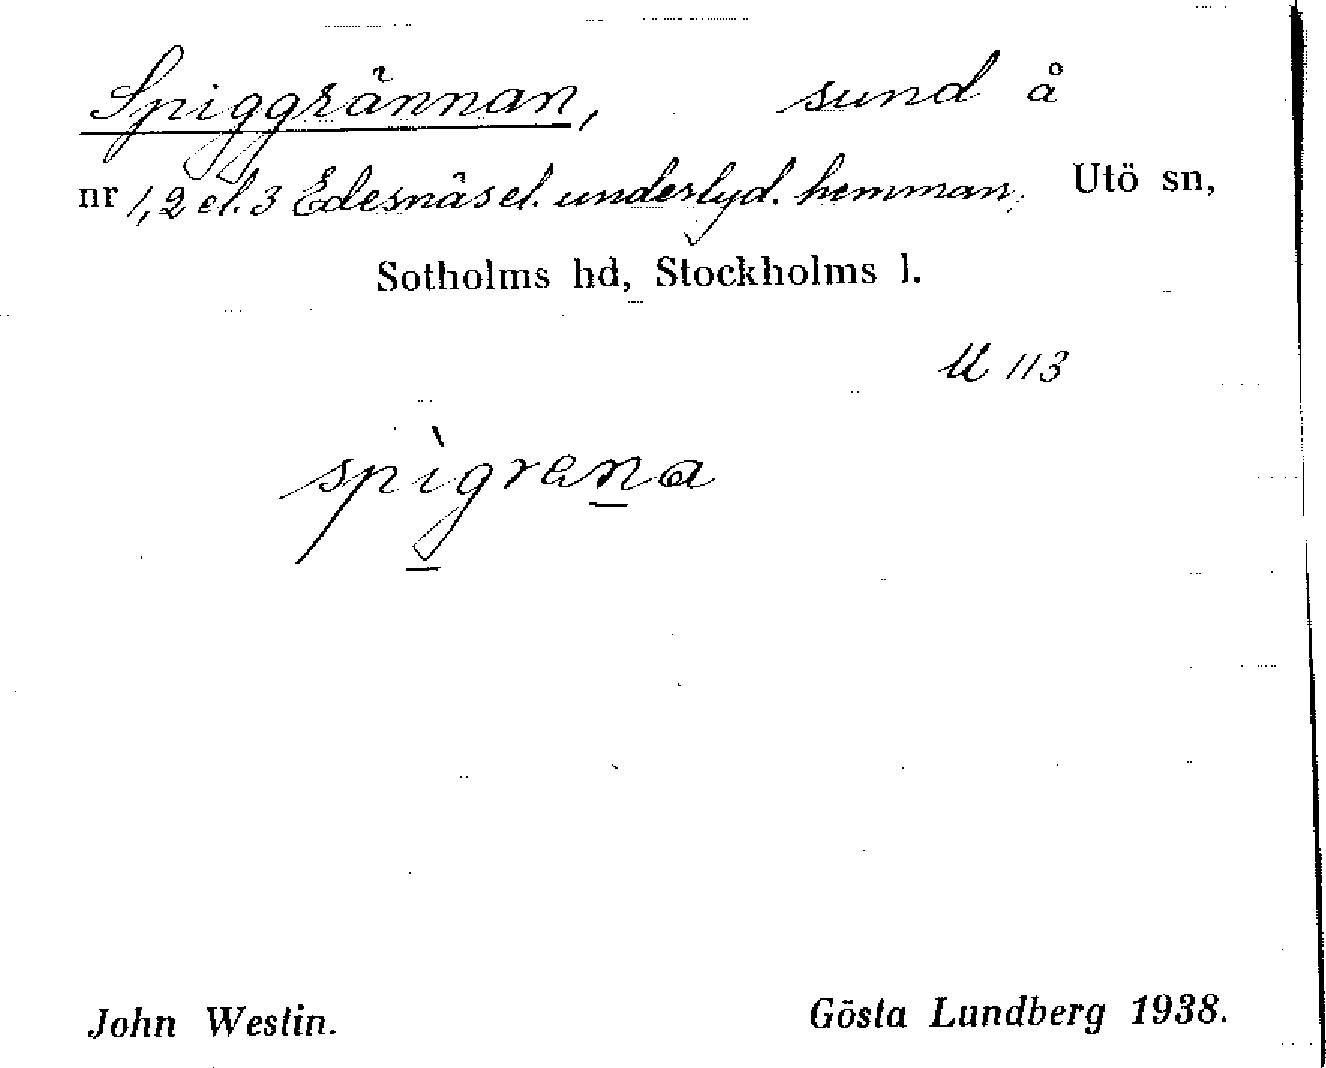 Spiggrännan, sund å
nr 1, 2 el. 3 Edesnäs el. underlyd. hemman, Utö sn,
Sotholms hd, Stockholms l.
U 113
spìgrena
John Westin. Gösta Lundberg 1938.